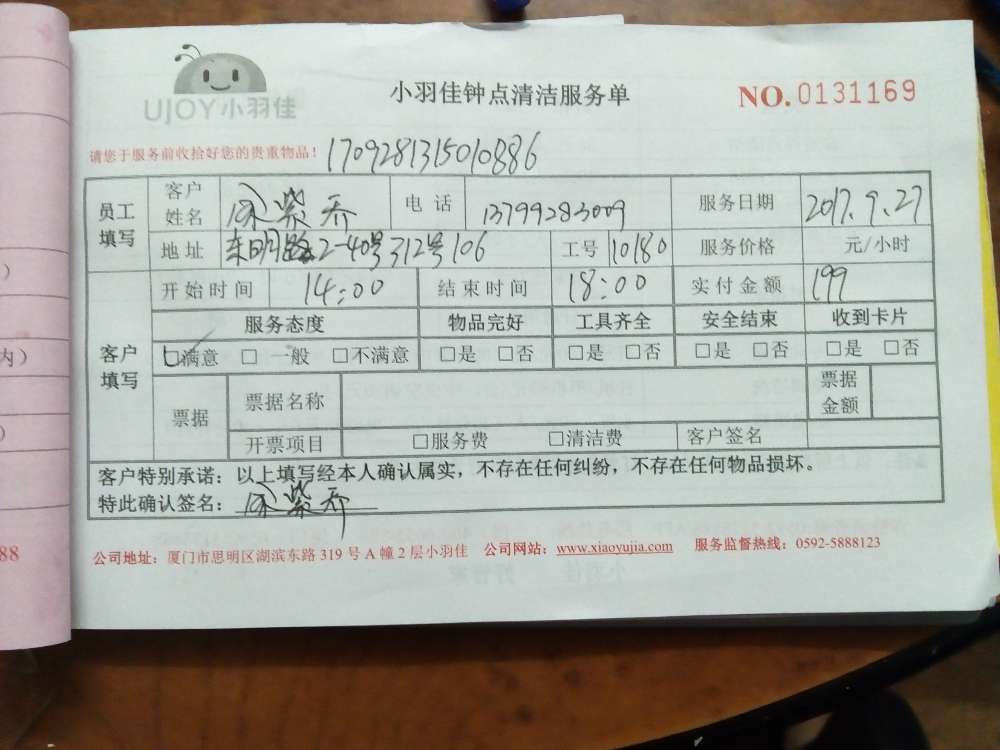 UJOY小羽佳
小羽佳钟点清洁服务单
NO.0131169
请您于服务前收拾好您的贵重物品！
1709281315010886
员工填写 客户姓名 紫乔 电话 13799283009 服务日期 2017.9.27
地址 东明路2-40号312号106 工号 10180 服务价格 元/小时
客户填写 开始时间 14:00 结束时间 18:00 实付金额 199
服务态度 物品完好 工具齐全 安全结束 收到卡片
☑满意 □一般 □不满意 □是 □否 □是 □否 □是 □否 □是 □否
票据 票据名称 票据金额
开票项目 □服务费 □清洁费 客户签名
客户特别承诺：以上填写经本人确认属实，不存在任何纠纷，不存在任何物品损坏。
特此确认签名：紫乔
公司地址：厦门市思明区湖滨东路 319 号 A 幢 2 层小羽佳 公司网站：www.xiaoyujia.com 服务监督热线：0592-5888123
内）
88